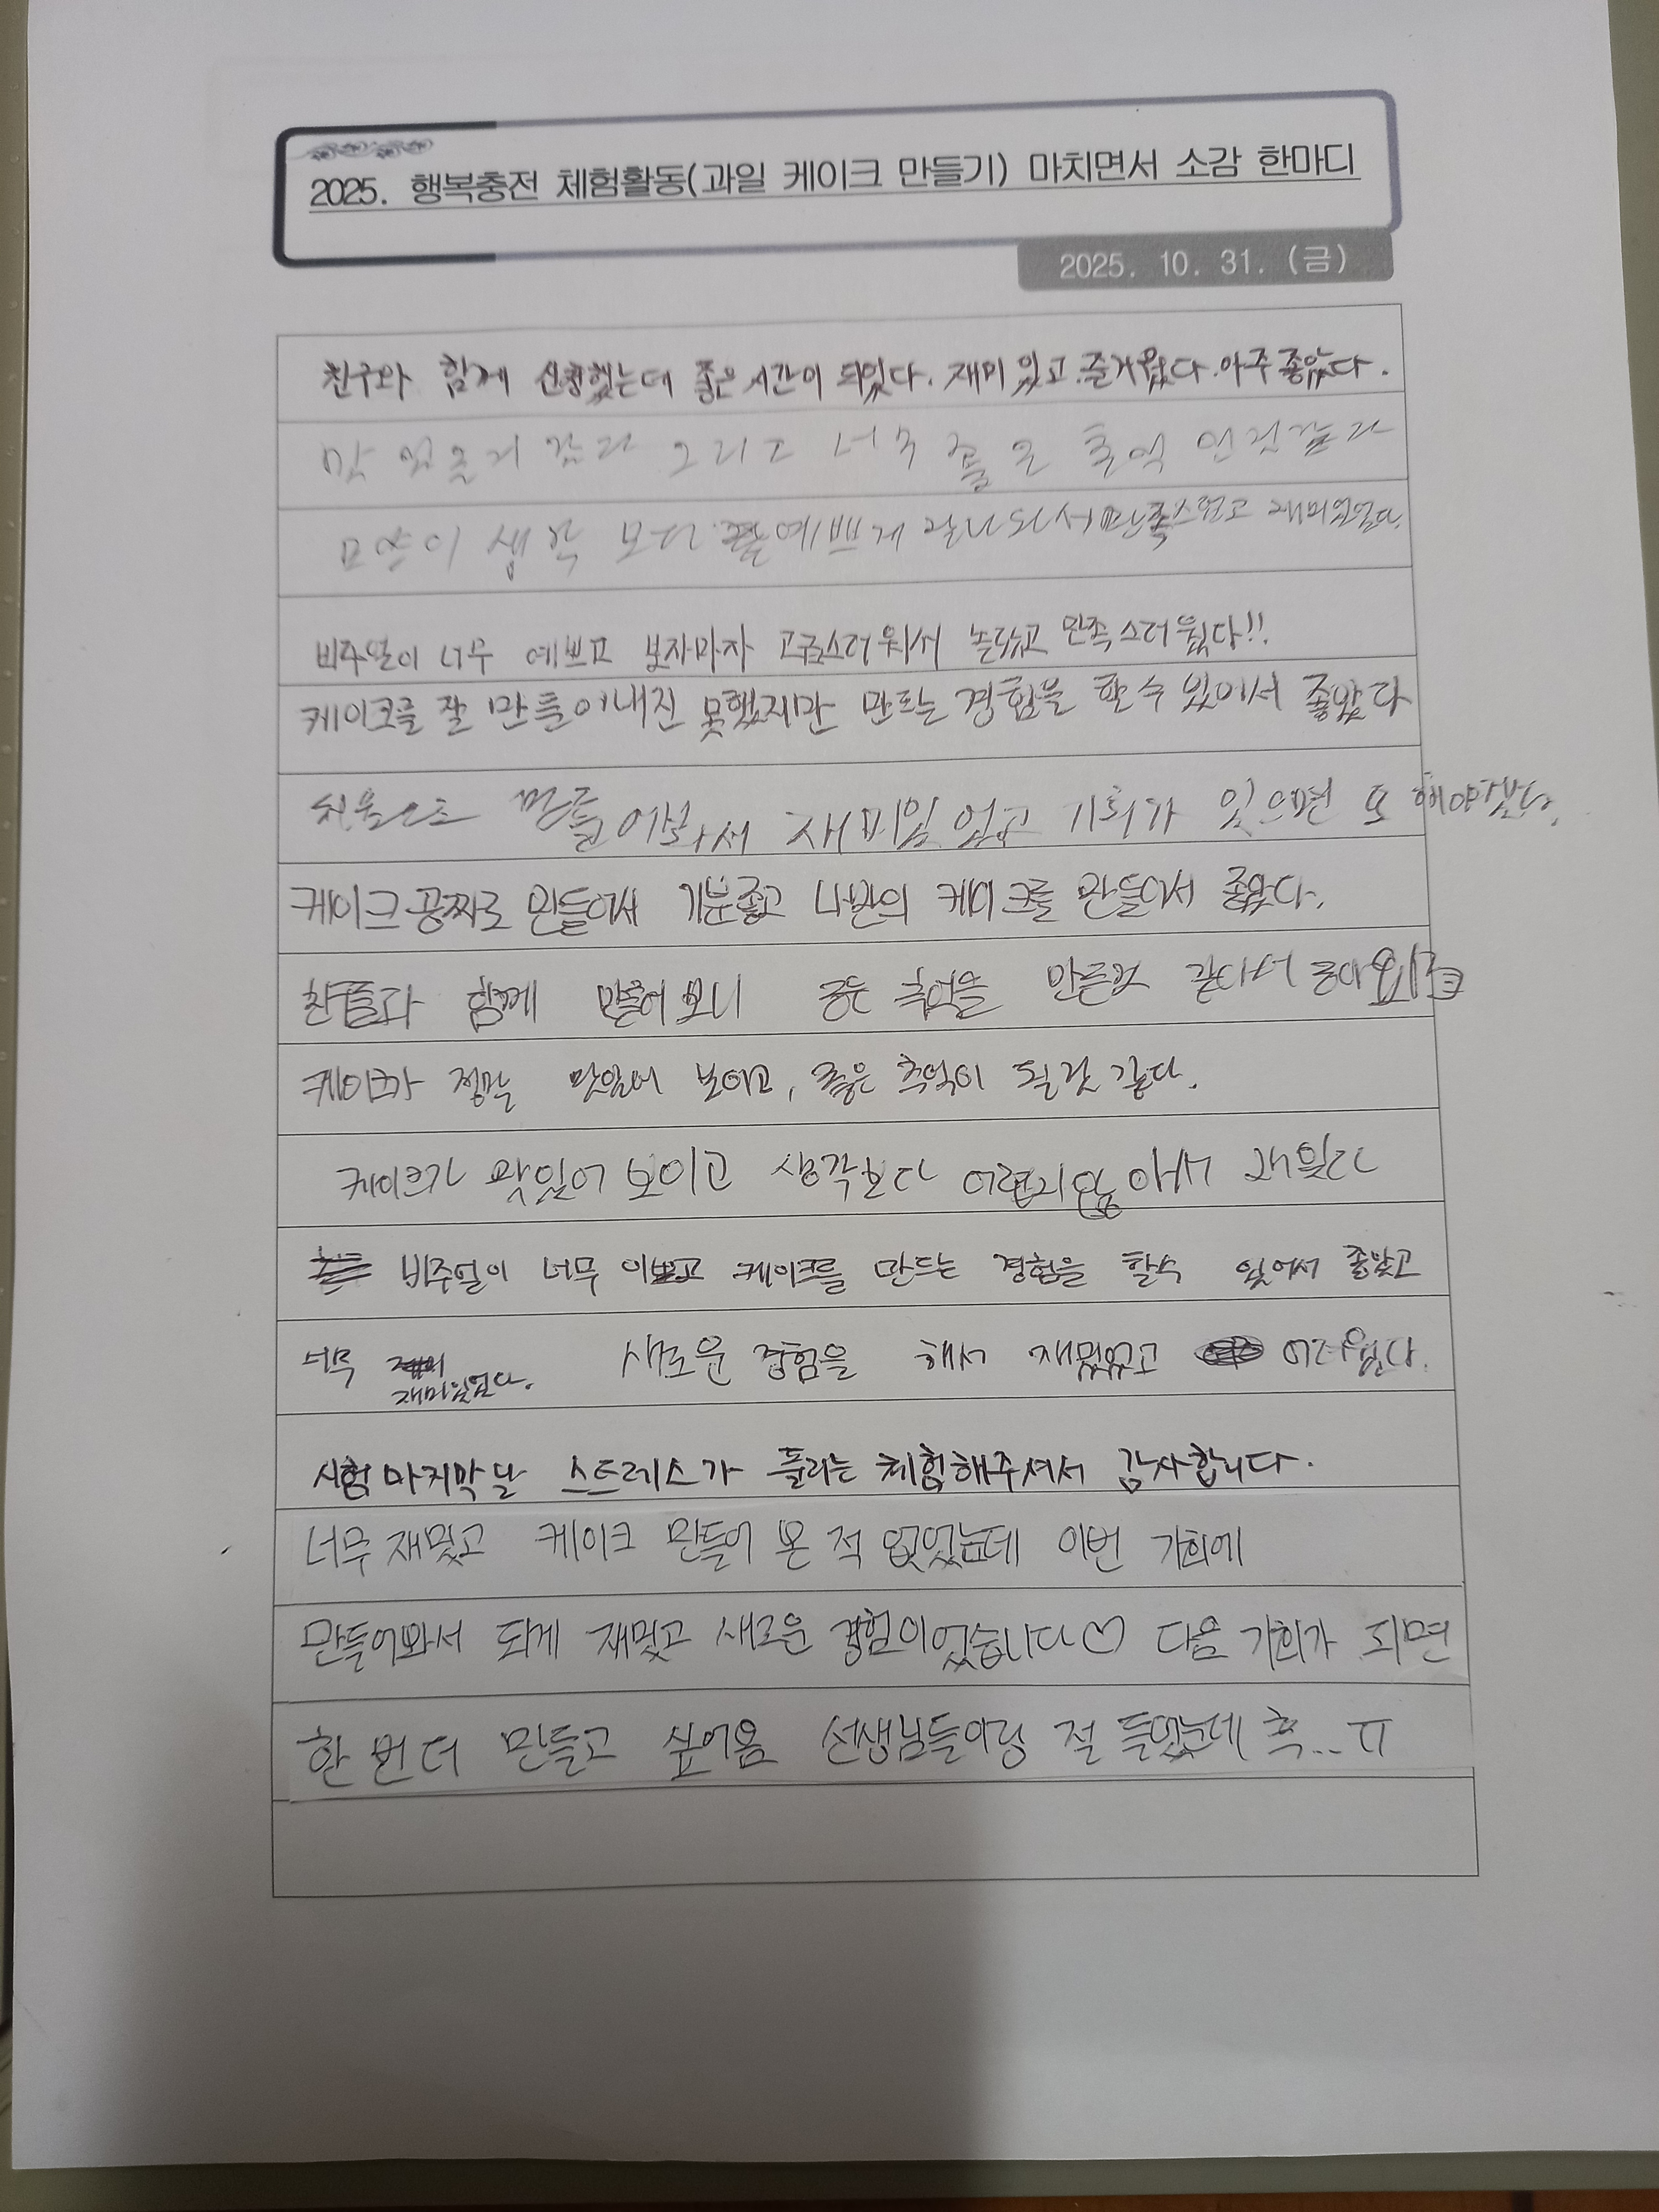 2025. 행복충전 체험활동(과일 케이크 만들기) 마치면서 소감 한마디
2025. 10. 31. (금)
친구와 함께 신청했는데 좋은 시간이 되었다. 재미있고 즐거웠다. 아주 좋았다.
맛 있을거 같다 그리고 너무 좋은 추억 인것같다
모양이 생각 보다 예쁘게 잘나와서 만족스럽고 재미있었다.
비주얼이 너무 예쁘고 보자마자 고급스러워서 놀랐고 만족스러웠다!!
케이크를 잘 만들어내진 못했지만 만드는 경험을 할 수 있어서 좋았다
처음으로 만들어봐서 재미있었고 기회가 있으면 또 해야겠다.
케이크 공짜로 만들어서 기분좋고 나만의 케이크를 만들어서 좋았다.
친구들과 함께 만들어 보니 좋은 추억을 만든것 같아서 좋아요
케이크가 정말 맛있어 보이고, 좋은 추억이 될것 같다.
케이크가 맛있어 보이고 생각보다 어렵지않아서 재밌다
비주얼이 너무 이쁘고 케이크를 만드는 경험을 할수 있어서 좋았고
너무 재미있었다. 새로운 경험을 해서 재밌었고 어려웠다.
시험 마지막날 스트레스가 풀리는 체험해주셔서 감사합니다.
너무 재밌고 케이크 만들어 본 적 없었는데 이번 기회에
만들어봐서 되게 재밌고 새로운 경험이었습니다♡ 다음 기회가 되면
한 번 더 만들고 싶어욤 선생님들이랑 정 들었는데 흑... ㅠ